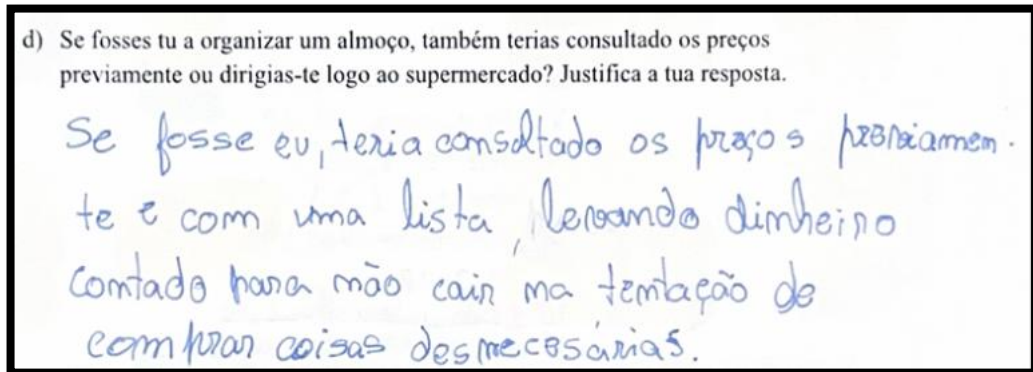 d) Se fosses tu a organizar um almoço, também terias consultado os preços
previamente ou dirigias-te logo ao supermercado? Justifica a tua resposta.
Se fosse eu, teria consultado os preços previamen-
te e com uma lista, levando dinheiro
contado para não cair na tentação de
comprar coisas desnecesárias.